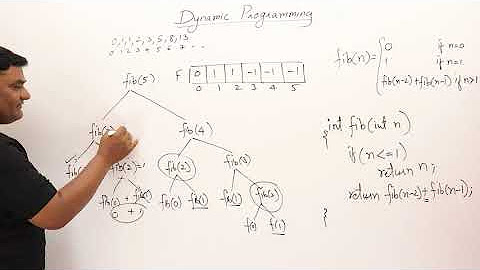 Dynamic Programming
0, 1, 1, 2, 3, 5, 8, 13
0 1 2 3 4 5 6 7 ...
fib(5)
F 0 1 1 -1 -1 -1
0 1 2 3 4 5
fib(4)
fib(2)=1
fib(2)
fib(3)
fib(0) + fib(1)
0 + 1
fib(0) fib(1) fib(1) fib(2)
f(0) f(1)
fib(n) = { 0 if n=0
1 if n=1
fib(n-2)+fib(n-1) if n>1
int fib(int n)
{
if(n<=1)
return n;
return fib(n-2)+fib(n-1);
}